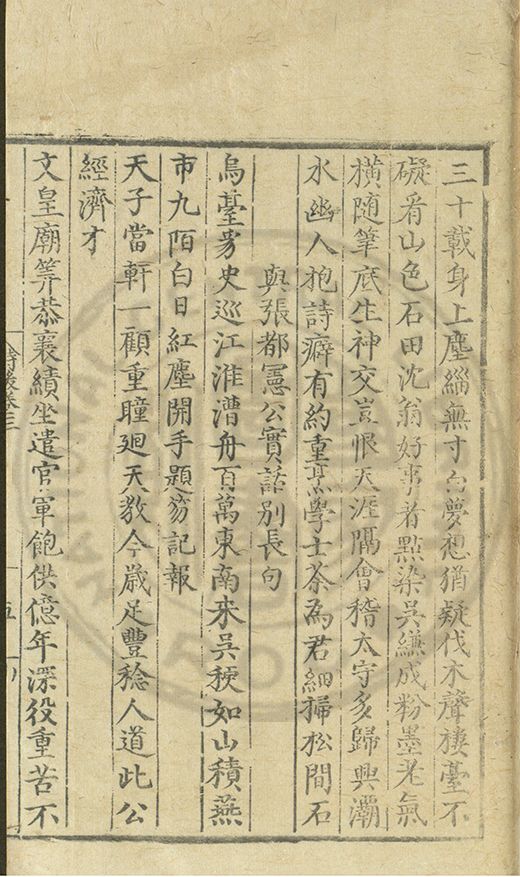 三十載身上塵緇無寸白夢想猶疑伐木聲棲臺不
礙看山色石田沈翁好事者點染吳縑成粉墨老氣
橫随筆底生神交豈恨天涯隔會稽太守多歸興灞
水幽人抱詩癖有約重烹學士茶為君細掃松間石
與張都憲公實話別長句
烏臺豸史巡江淮漕舟百萬東南来吳稉如山積燕
市九陌白日紅塵開手題笏記報
天子當軒一顧重瞳廻天教今歳足豐稔人道此公
經濟才
文皇廟筭恭襄績坐遣官軍飽供億年深役重苦不
詩後卷三
五